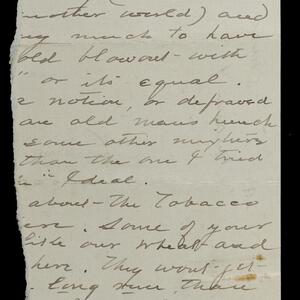 nother world) and
ng much to have
old blowout with
" or its equal.
e notion, or depraved
are old man's hunch
some other mighty
than the one I tried
" Ideal.
about the Tobacco
ere. Some of your
like our wheat and
here. They wont get
long run than